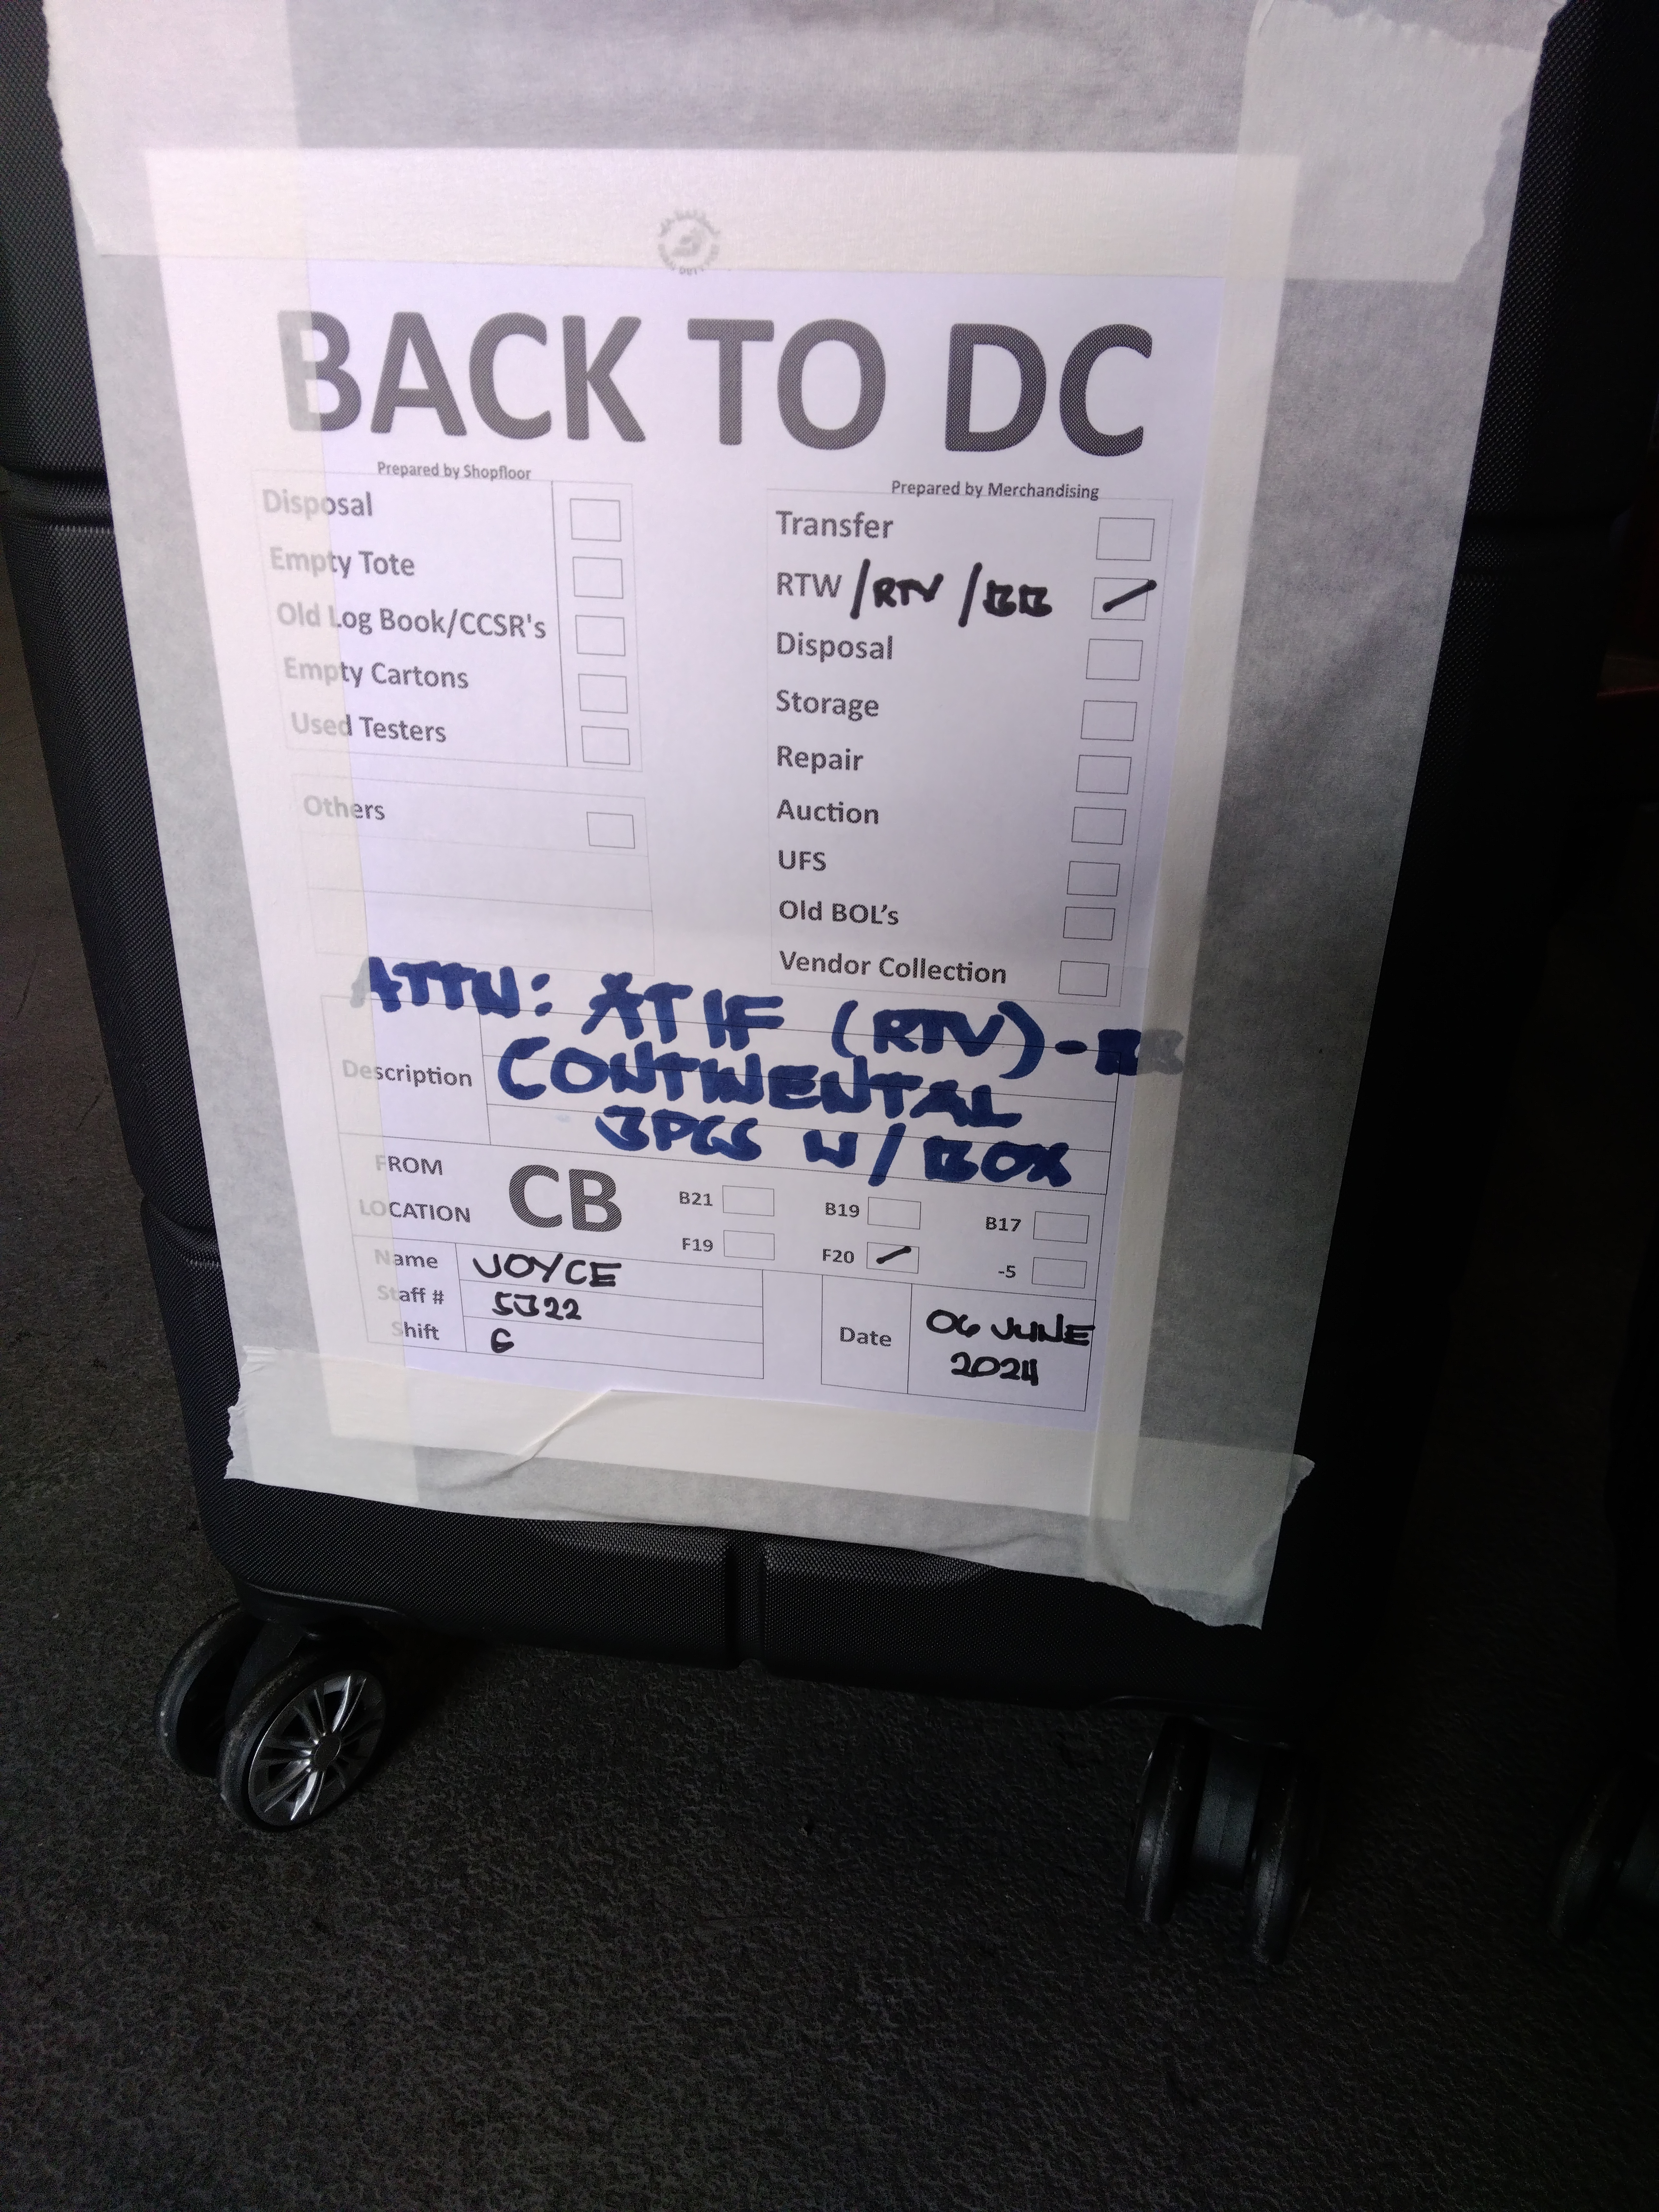 BACK TO DC
Prepared by Shopfloor
Disposal
Empty Tote
Old Log Book/CCSR's
Empty Cartons
Used Testers
Others
Prepared by Merchandising
Transfer
RTW /RTV /BB
Disposal
Storage
Repair
Auction
UFS
Old BOL's
Vendor Collection
ATTN: ATIF (RTV)-BB
Description CONTINENTAL
3PCS W/BOX
FROM
LOCATION
CB
B21 B19 B17
F19 F20 -5
Name JOYCE
Staff # 5322
Shift G
Date 06 JUNE
2024